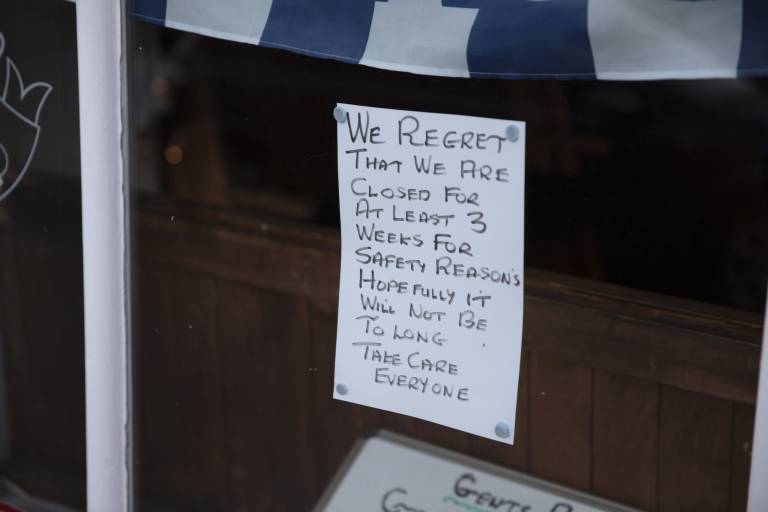 We Regret
That We Are
Closed For
At Least 3
Weeks For
Safety Reason's
Hopefully it
Will Not Be
To Long
Take Care
Everyone
Gents